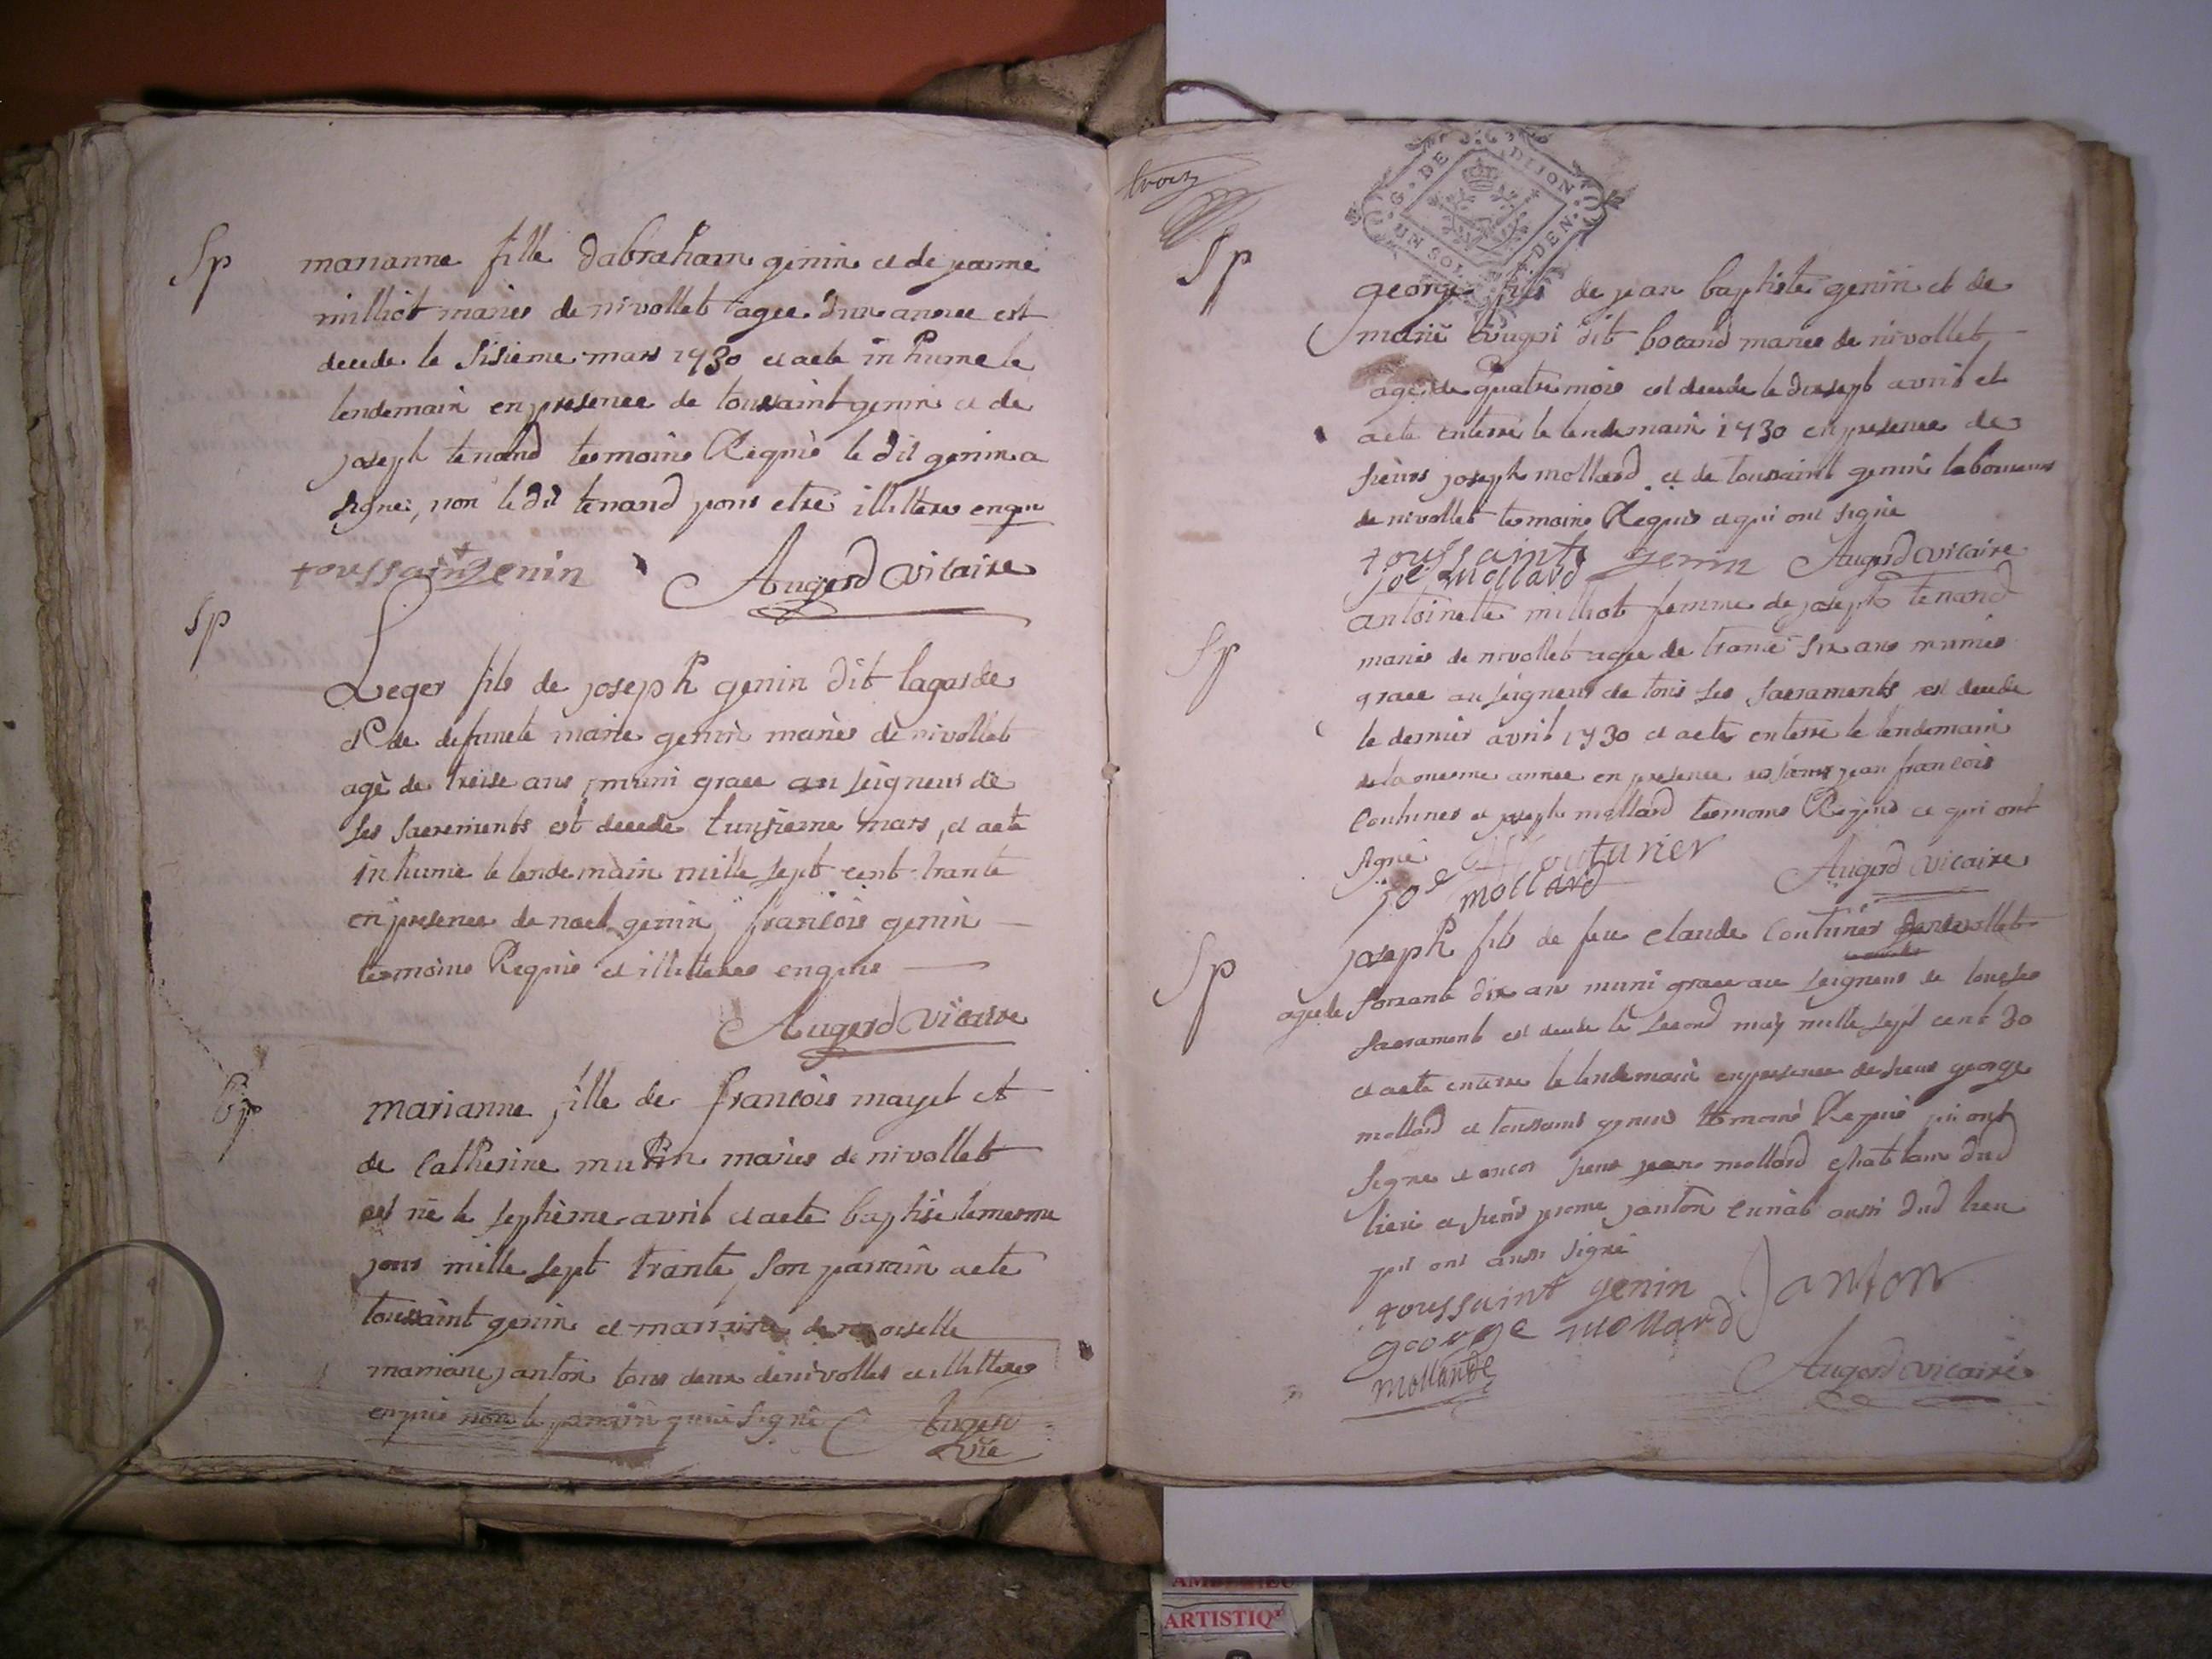 Sp
marianne fille dabraham genin et de jeanne
milliot maries de nivollet agee d'une annee est
decede le sisieme mars 1730 et a ete inhume le
lendemain en presence de toussaint genin et de
joseph tenand temoins Requis le dit genin a
signé, non le dit tenand pour etre illittere enquis
toussaint genin Augerd vicaire
Sp
Leger fils de joseph genin dit lagarde
et de defuncte marie genin maries de nivollet
agé de treise ans, muni grace au seigneur de
ses sacrements est decede l'unsieme mars, et a ete
inhumé le lendemain mille sept cent trante
en presence de noel genin, francois genin
temoins Requis et illitteres enquis
Augerd vicaire
bp
marianne fille de francois mayet et
de Catherine mutin maries de nivollet
est né le septième avril et a ete baptisé le mesme
jour mille sept trante son parrain a ete
toussaint genin et marraine demoiselle
janton tous deux de nivollet et illitteres
enquis non le parrain qui a signé Augerd
vic
trois
G. DE DIJON
UN SOL DEN.
Sp
george fils de jean baptiste genin et de
marie dit bocand maries de nivollet
agé de quatre mois est decede le dixsept avril et
a ete enterré le lendemain 1730 en presence de
sieurs joseph mollard et de toussaint genin laboureurs
de nivollet temoins Requis et qui ont signé
toussaint genin Augerd vicaire
jos mollard
Sp
antoinette milliot femme de joseph tenand
maries de nivollet agee de trante six ans munie
grace au seigneur de tous ses sacraments est decede
le dernier avril 1730 et a ete enterré le lendemain
de la mesme annee en presence des sieurs jean francois
Couturier et joseph mollard temoins Requis et qui ont
signé Couturier
jos mollard Augerd vicaire
Sp
joseph fils de feu claude Couturier de nivollet
agé de soixante dix ans muni grace au seigneur de tous ses
sacrament est decede le second may mille sept cent 30
et a ete enterré le lendemain en presence de sieurs george
mollard et toussaint genin temoins Requis qui ont
signé et encor sieur jean mollard chatelain dud
lieu et sieur janton aussi dud lieu
qui ont aussi signé
toussaint genin Janton
george mollard
mollard
Augerd vicaire
ARTISTIQ